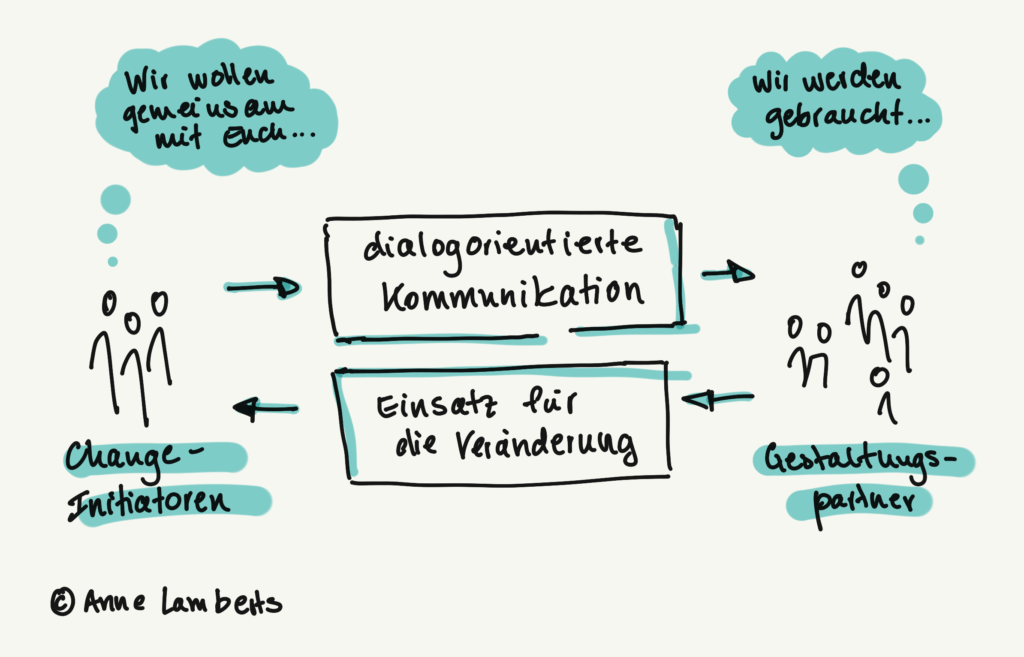 Wir wollen
gemeinsam
mit Euch...
Wir werden
gebraucht...
dialogorientierte
Kommunikation
Einsatz für
die Veränderung
Change-
Initiatoren
Gestaltungs-
partner
© Anne Lamberts